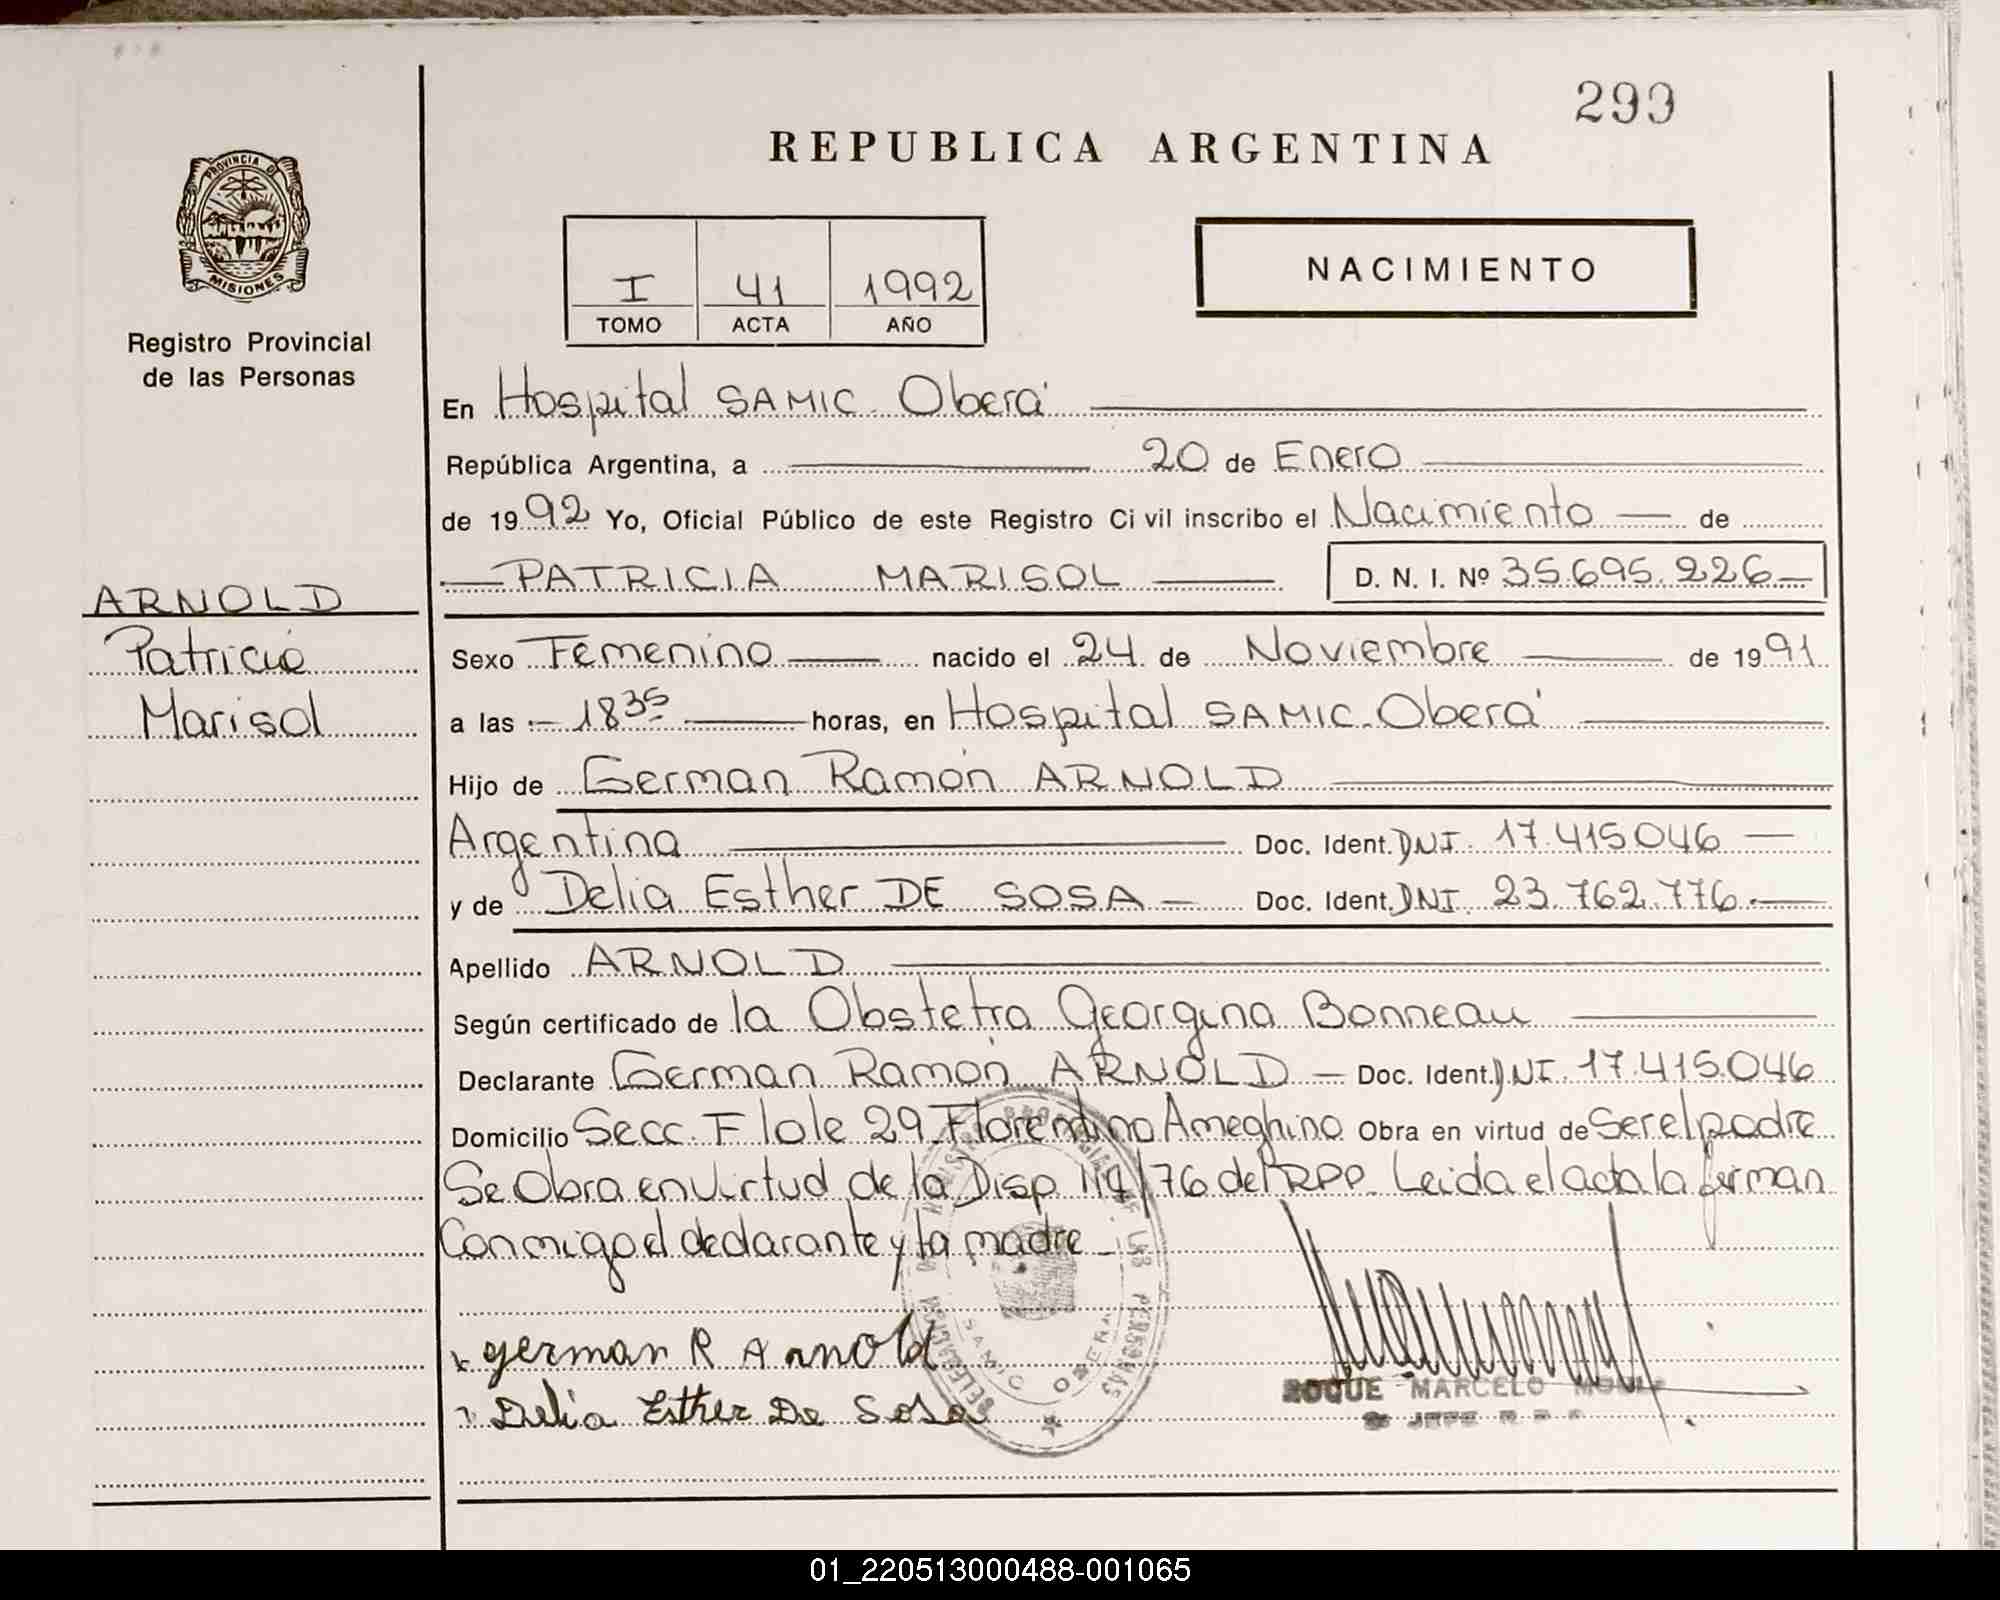 299
REPUBLICA ARGENTINA
PROVINCIA DE
MISIONES
Registro Provincial
de las Personas
I 41 1992
TOMO ACTA AÑO
NACIMIENTO
En Hospital SAMIC Oberá
República Argentina, a 20 de Enero
de 1992 Yo, Oficial Público de este Registro Civil inscribo el Nacimiento de
PATRICIA MARISOL D. N. I. Nº 35.695.226
ARNOLD
Patricia
Marisol
Sexo Femenino nacido el 24 de Noviembre de 1991
a las 18 35 horas, en Hospital SAMIC Oberá
Hijo de German Ramón ARNOLD
Argentina Doc. Ident. DNI. 17.415.046
y de Delia Esther DE SOSA Doc. Ident. DNI. 23.762.776
Apellido ARNOLD
Según certificado de la Obstetra Georgina Bonneau
Declarante German Ramón ARNOLD Doc. Ident. DNI. 17.415.046
Domicilio Secc. F lote 29 Florentino Ameghino Obra en virtud de Ser el padre
Se Obra en virtud de la Disp. 114/76 del RPP. Leida el acta la firman
Conmigo el declarante y la madre
german R Arnold
Delia Esther De Sosa
DE LAS PERSONAS
SAMIC OBERA
ROQUE MARCELO
JEFE
01_220513000488-001065